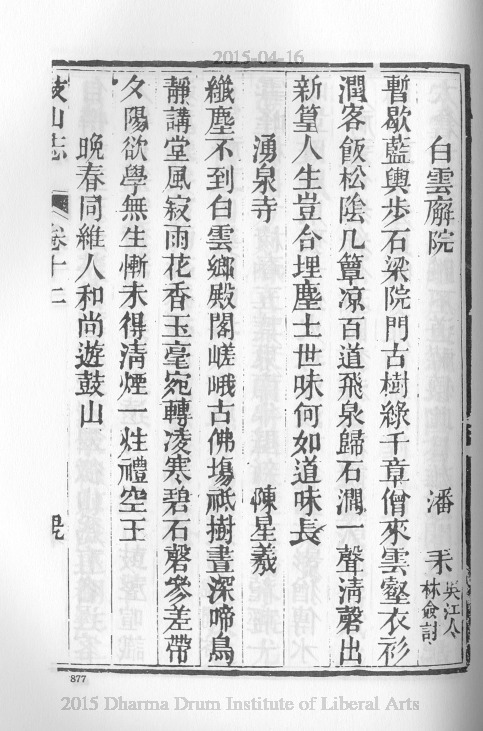 2015-04-16
白雲廨院　潘耒 吳江人 林 討
暫歇藍輿步石梁院門古樹綠千章僧來雲壑衣衫
潤客飯松陰几簟凉百道飛泉歸石澗一聲淸磬出
新篁人生豈合埋塵土世味何如道味長
湧泉寺　陳星羲
纖塵不到白雲鄉殿閣嵯峨古佛塲祇樹晝深啼鳥
靜講堂風寂雨花香玉毫宛轉凌寒碧石磬參差帶
夕陽欲學無生慚未得淸煙一炷禮空王
晚春同維人和尚遊鼓山
鼓山志　卷十二
877
2015 Dharma Drum Institute of Liberal Arts